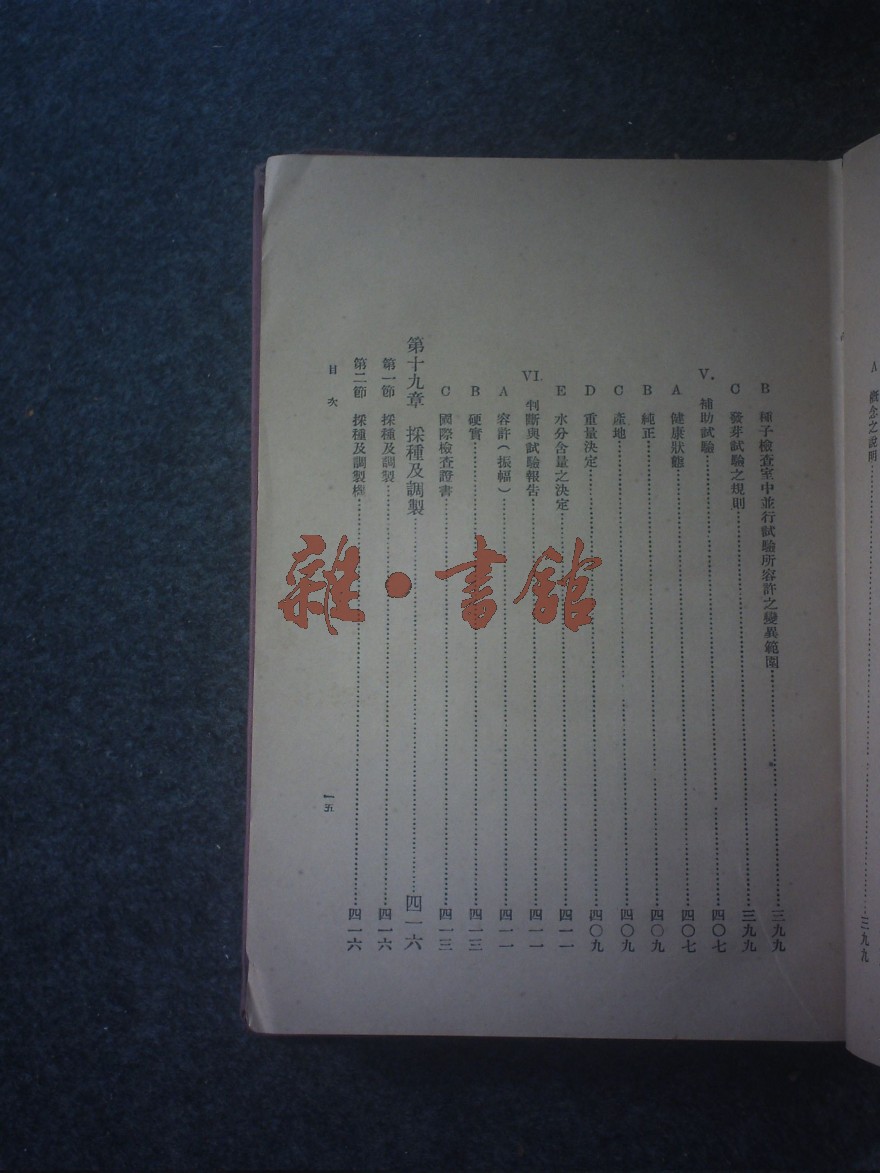 A 概念之說明……三九九
B 種子檢查室中並行試驗所容許之變異範圍……三九九
C 發芽試驗之規則……三九九
V. 補助試驗……四〇七
A 健康狀態……四〇七
B 純正……四〇九
C 產地……四〇九
D 重量決定……四〇九
E 水分含量之決定……四一一
VI. 判斷與試驗報告……四一一
A 容許(振幅)……四一一
B 硬實……四一三
C 國際檢查證書……四一三
第十九章 採種及調製……四一六
第一節 採種及調製……四一六
第二節 採種及調製機……四一六
目次 一五
雜·書館